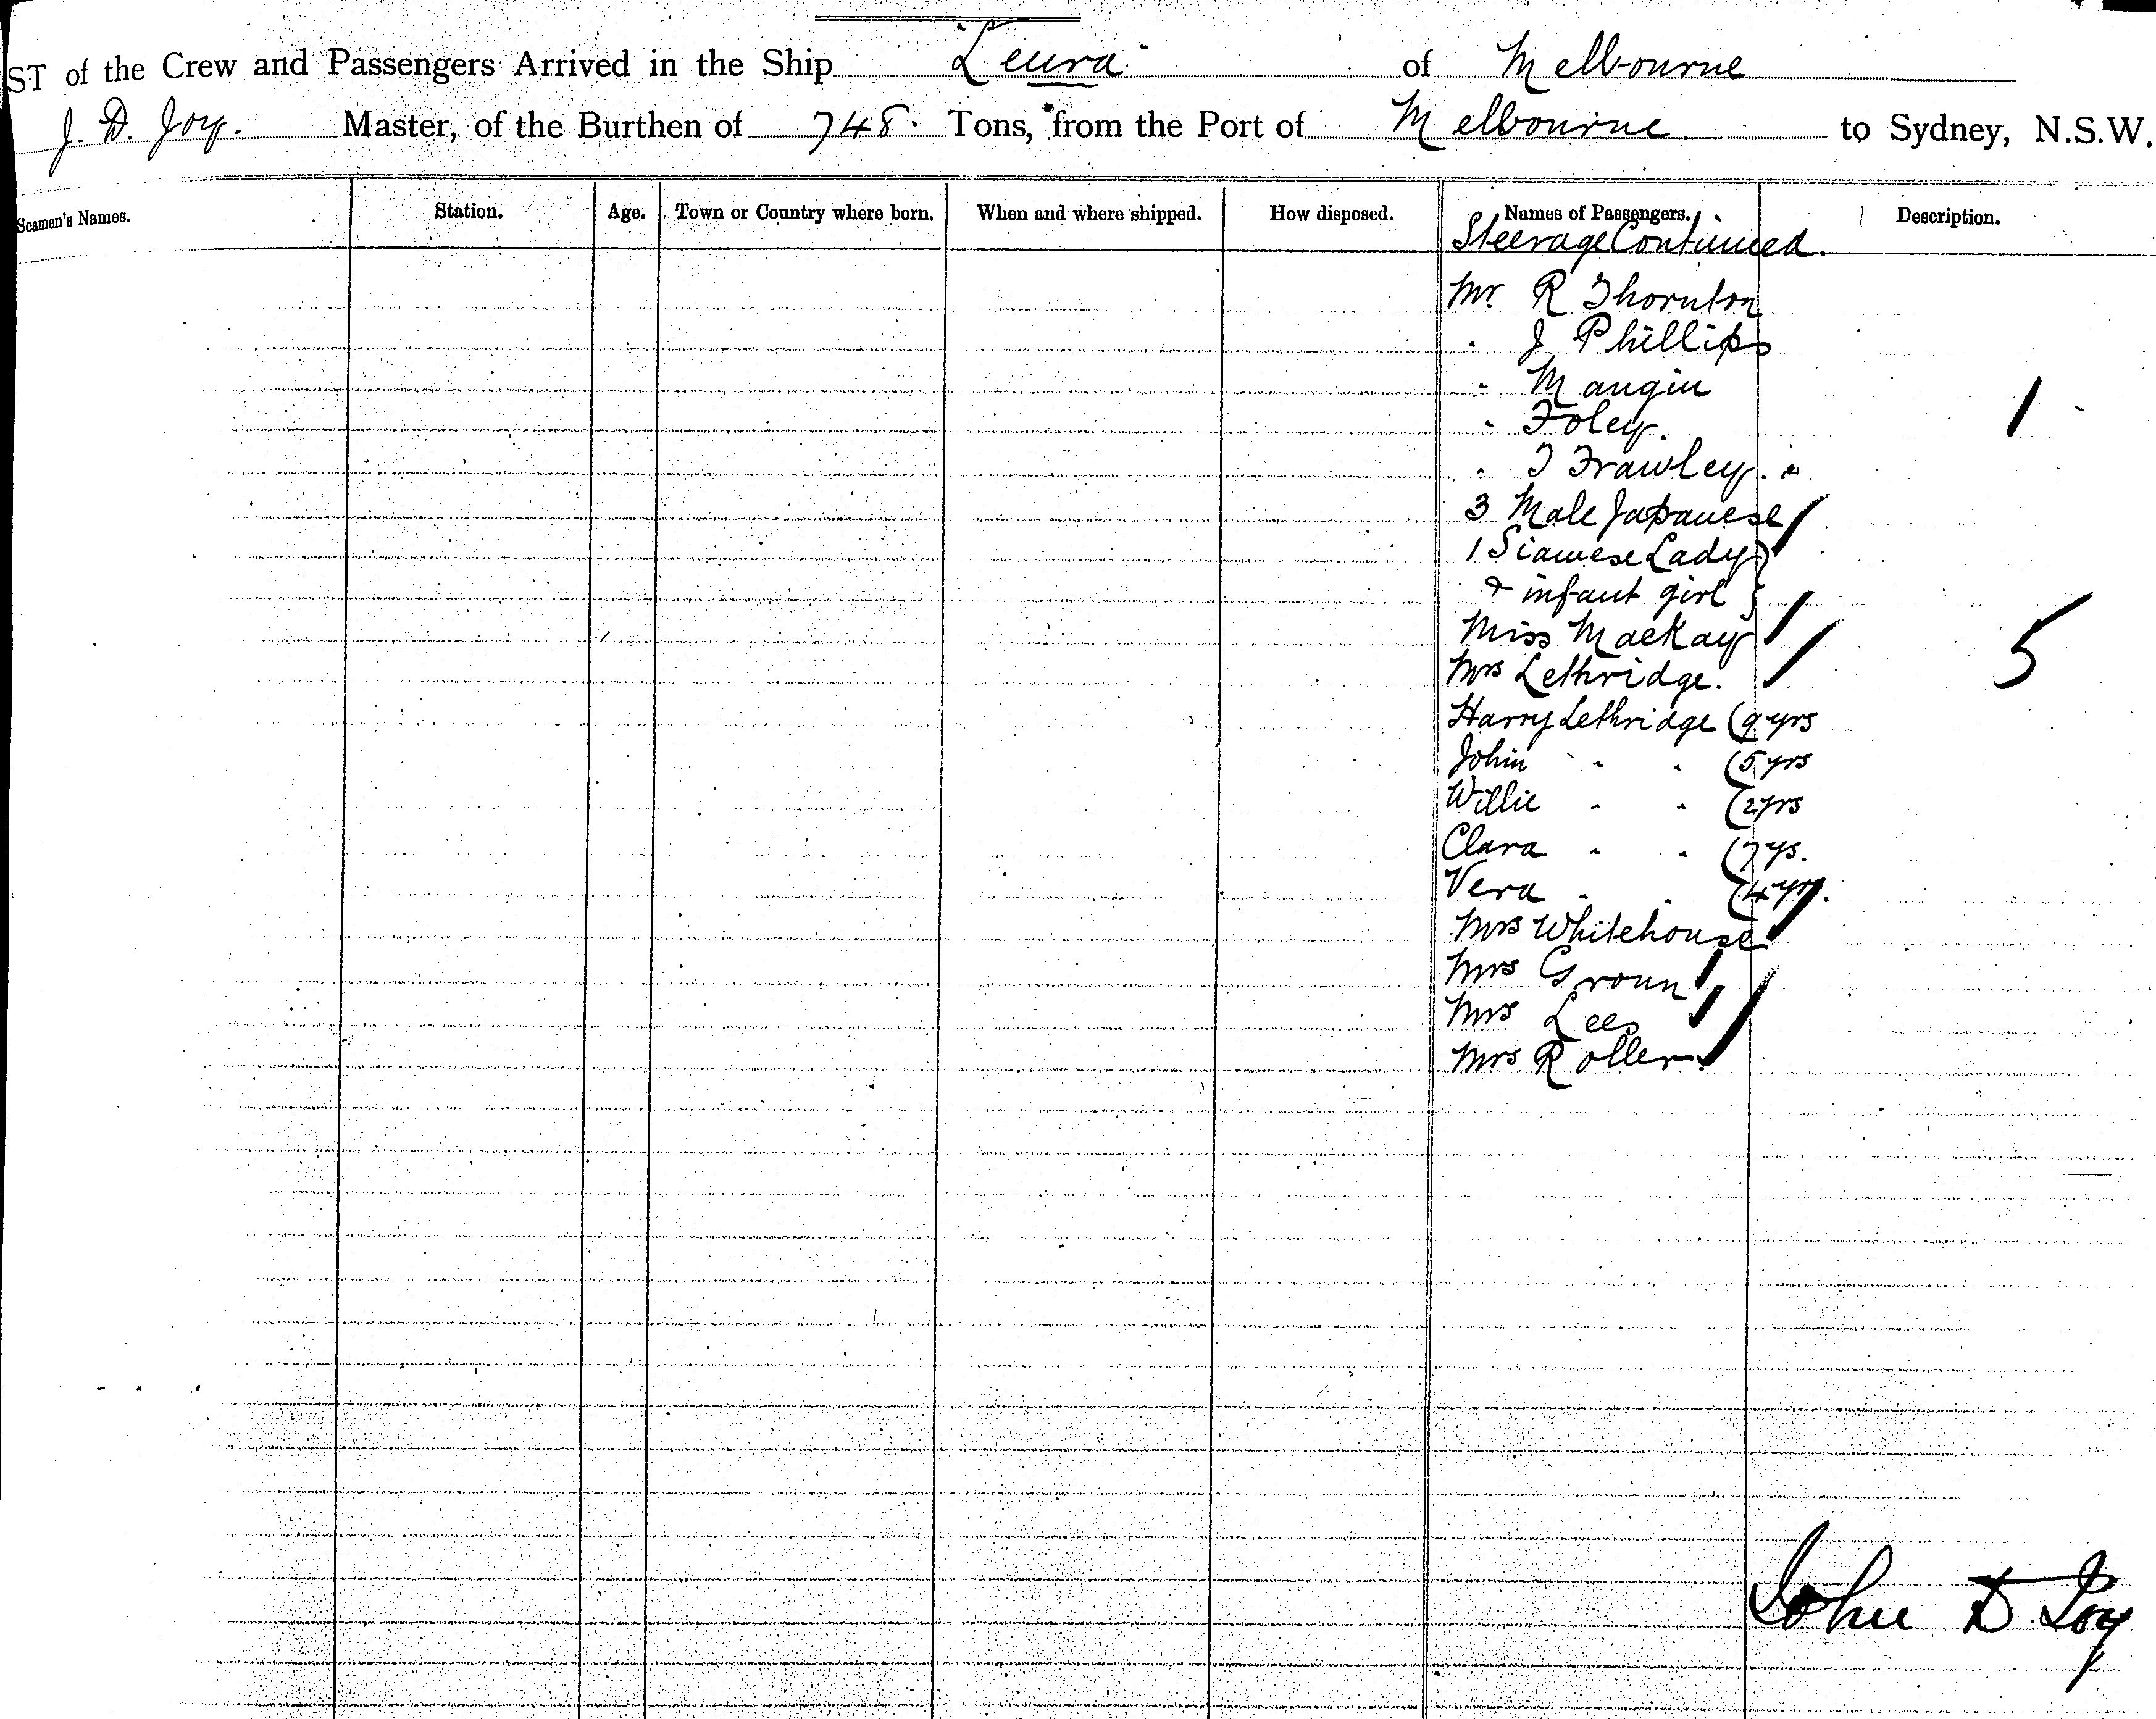 ST of the Crew and Passengers Arrived in the Ship Leura of Melbourne
J. D. Joy. Master, of the Burthen of 748. Tons, from the Port of Melbourne to Sydney, N.S.W.
Seamen's Names. Station. Age. Town or Country where born. When and where shipped. How disposed. Names of Passengers. Description.
Steerage Continued.
Mr. R Thornton
" J Phillips
" Mangin
" Foley. 1
" T Frawley.
3 Male Japanese
1 Siamese Lady }
& infant girl }
Miss MacKay
Mrs Lethridge. 5
Harry Lethridge (9 yrs
John " " (5 yrs
Willie " " (2 yrs
Clara " " (7 ys.
Vera " " (4 yrs.
Mrs Whitehouse
Mrs Groun
Mrs Lees
Mrs Roller
John D Joy